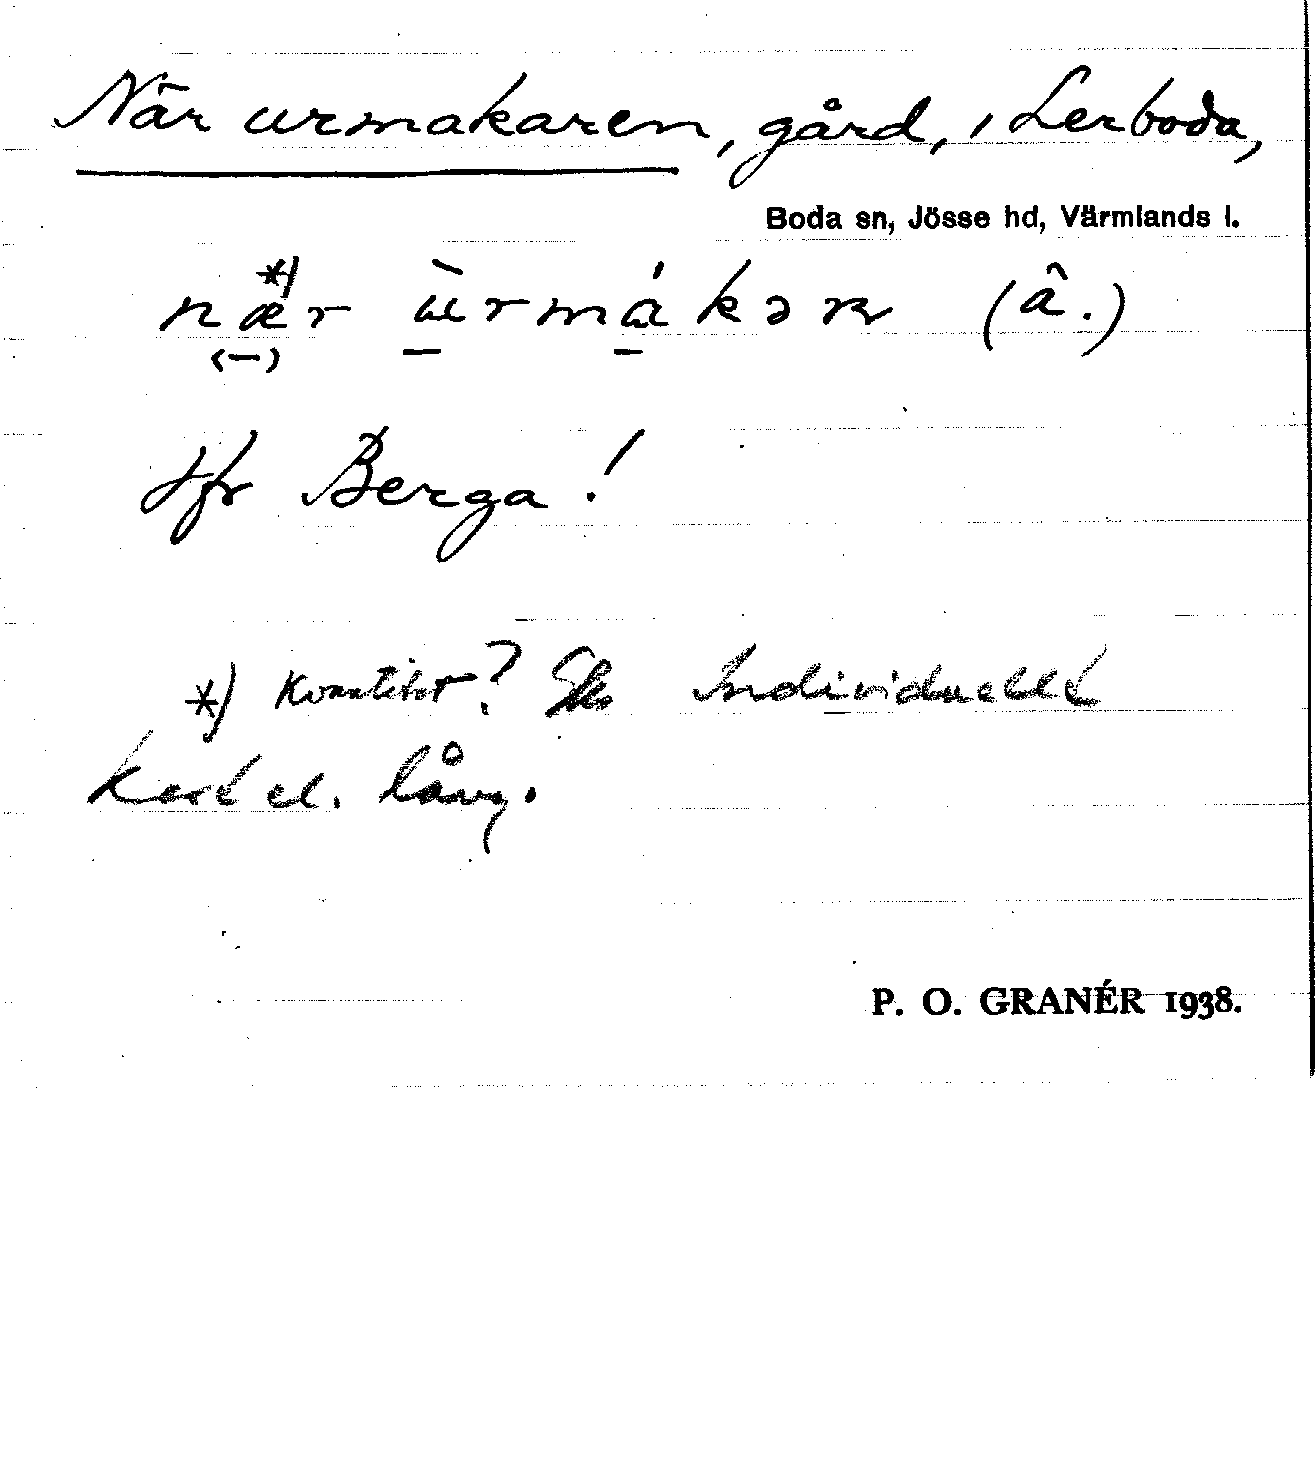 När urmakaren, gård, i Lerboda,
Boda sn, Jösse hd, Värmlands l.
*)
nær ùrmákər (â.)
(–)
Jfr Berga!
*) Kvantitet? Individuellt
kort el. lång.
P. O. GRANÉR 1938.